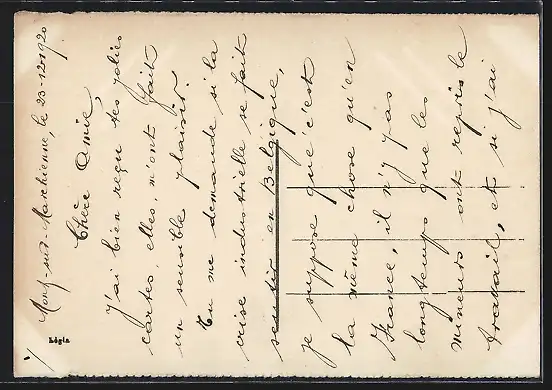 1/ Mont-sur-Marchienne, le 23-12-1920
Chère Amie,
J'ai bien reçu tes jolies
cartes, elles m'ont fait
un sensible plaisir.
Tu me demande si la
crise industrielle se fait
sentir en Belgique,
je suppose que c'est
la même chose qu'en
France, il n'y pas
longtemps que les
mineurs ont repris le
travail, et si j'ai
Légia